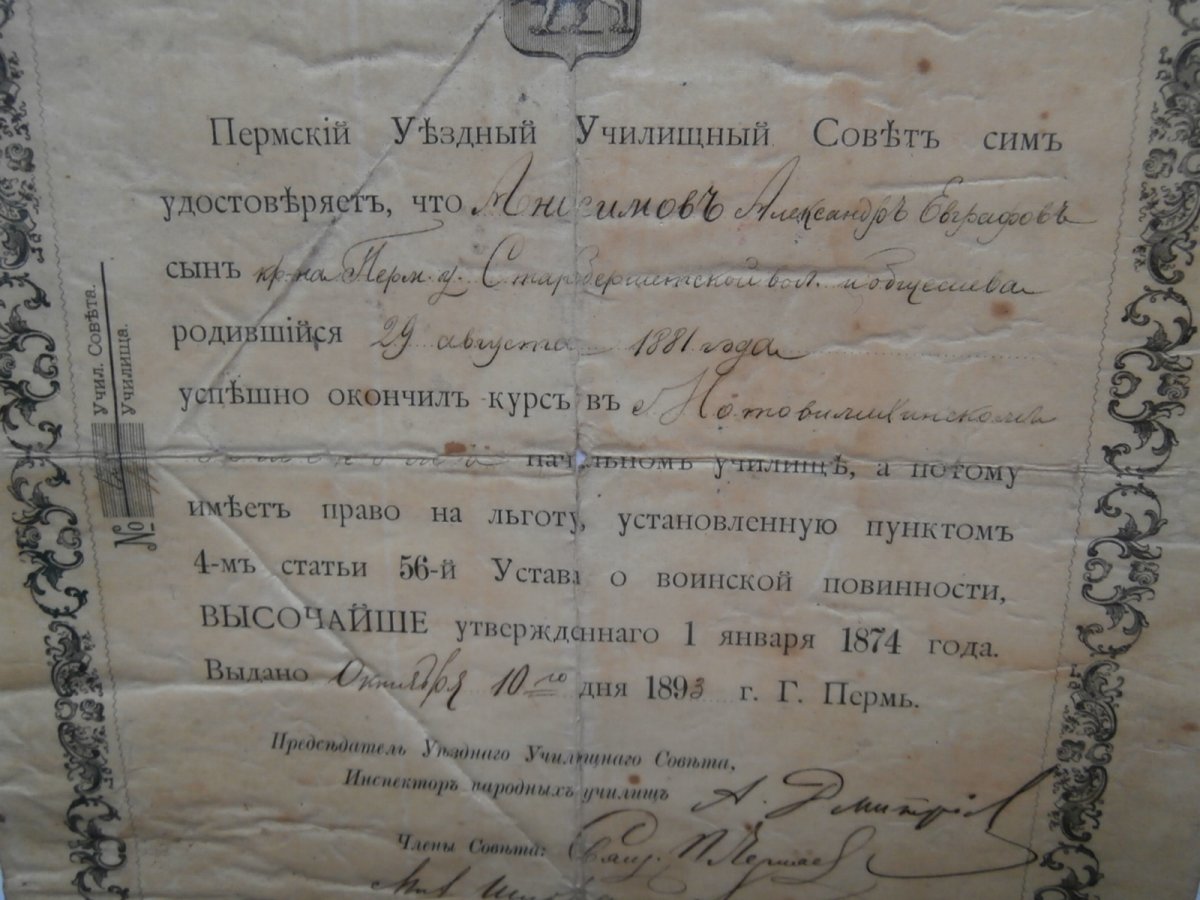 Пермскій Уѣздный Училищный Совѣтъ симъ
удостовѣряетъ, что Анисимовъ Александръ Евграфовъ
сынъ кр-на Перм. у. Старовершетской вол. и общества
родившійся 29 августа 1881 года
успѣшно окончилъ курсъ въ Мотовилихинскомъ
начальномъ училищѣ, а потому
имѣетъ право на льготу, установленную пунктомъ
4-мъ статьи 56-й Устава о воинской повинности,
ВЫСОЧАЙШЕ утвержденнаго 1 января 1874 года.
Выдано Октября 10го дня 1893 г. Г. Пермь.
Предсѣдатель Уѣзднаго Училищнаго Совѣта,
Инспекторъ народныхъ училищъ А. Дмитріев
Члены Совѣта: Свящ.
№ Учил. Совѣта.
Училища.